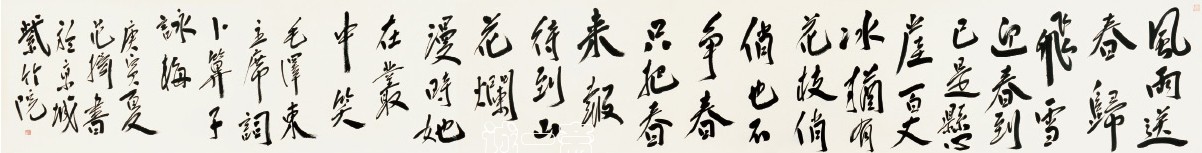 風雨送
春歸
飛雪
迎春到
已是懸
崖百丈
冰猶有
花枝俏
俏也不
争春
只把春
来報
待到山
花爛
漫時她
在叢
中笑
毛澤東
主席詞
卜算子
詠梅
庚寅夏
范揚書
於京城
紫竹院